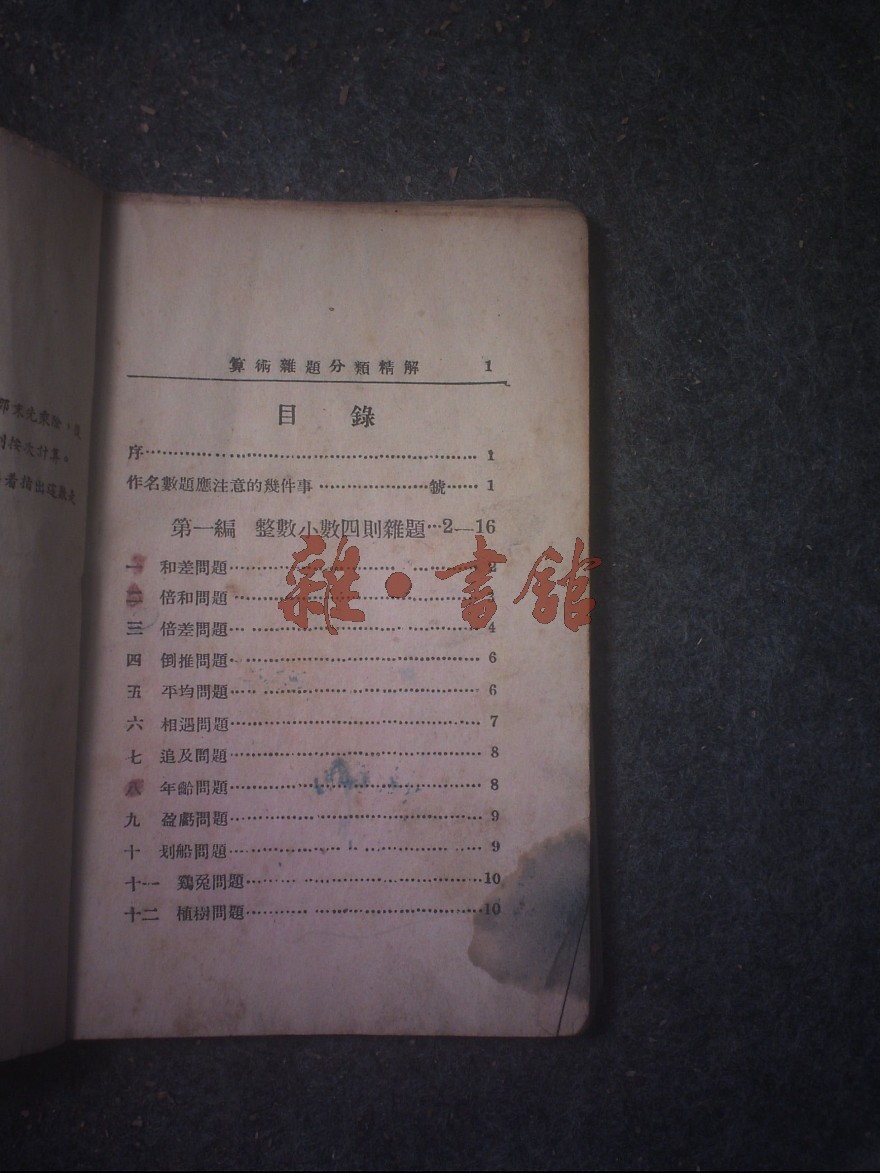 即末先乘除，後
則按次計算。
看指出碇數是
算術雜題分類精解 1
目 錄
序 1
作名數題應注意的幾件事 號 1
第一編 整數小數四則雜題 2—16
一 和差問題 2
二 倍和問題 3
三 倍差問題 4
四 倒推問題 6
五 平均問題 6
六 相遇問題 7
七 追及問題 8
八 年齡問題 8
九 盈虧問題 9
十 划船問題 9
十一 鷄兔問題 10
十二 植樹問題 10
雜·書館